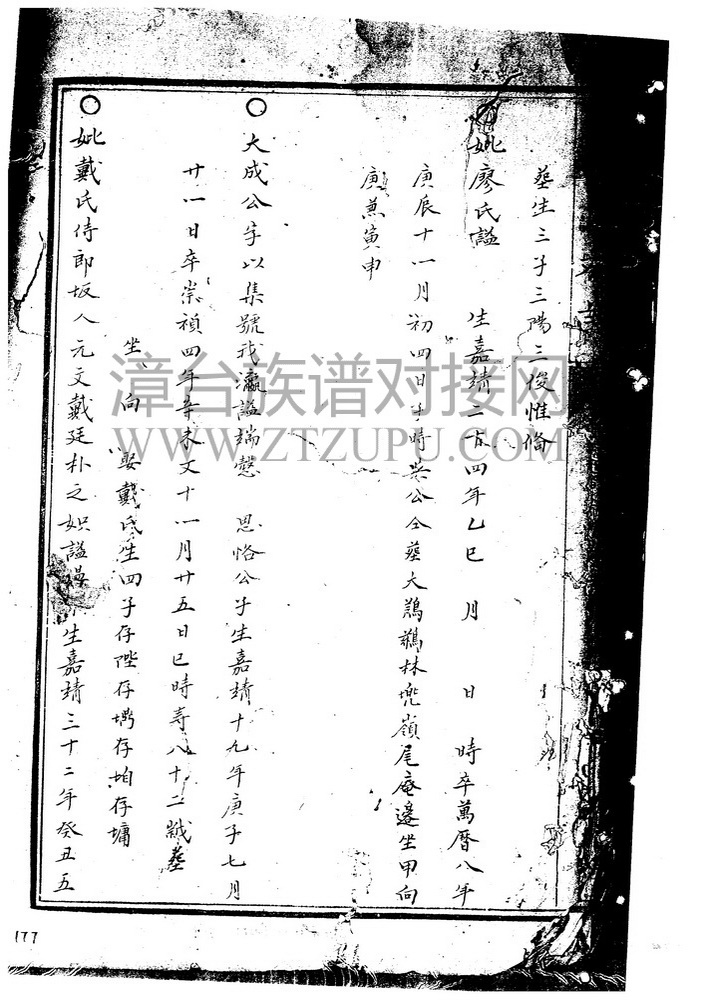 葬生三子三陽三俊惟俻
妣廖氏謚 生嘉靖二十四年乙巳 月 日 時卒萬曆八年
庚辰十一月初四日子時與公仝葬大鷓鴣林兠嶺尾庵邊坐甲向
庚兼寅申
大成公字以集號我瀛謚端慤 思恪公子生嘉靖十九年庚子七月
廿一日卒崇禎四年辛未又十一月廿五日巳時壽八十二歲葬
坐 向 娶戴氏生四子存陛存 存垍存墉
妣戴氏侍郎坂人元文戴廷朴之 謚 生嘉靖三十二年癸丑五
177
漳台族谱对接网
WWW.ZTZUPU.COM